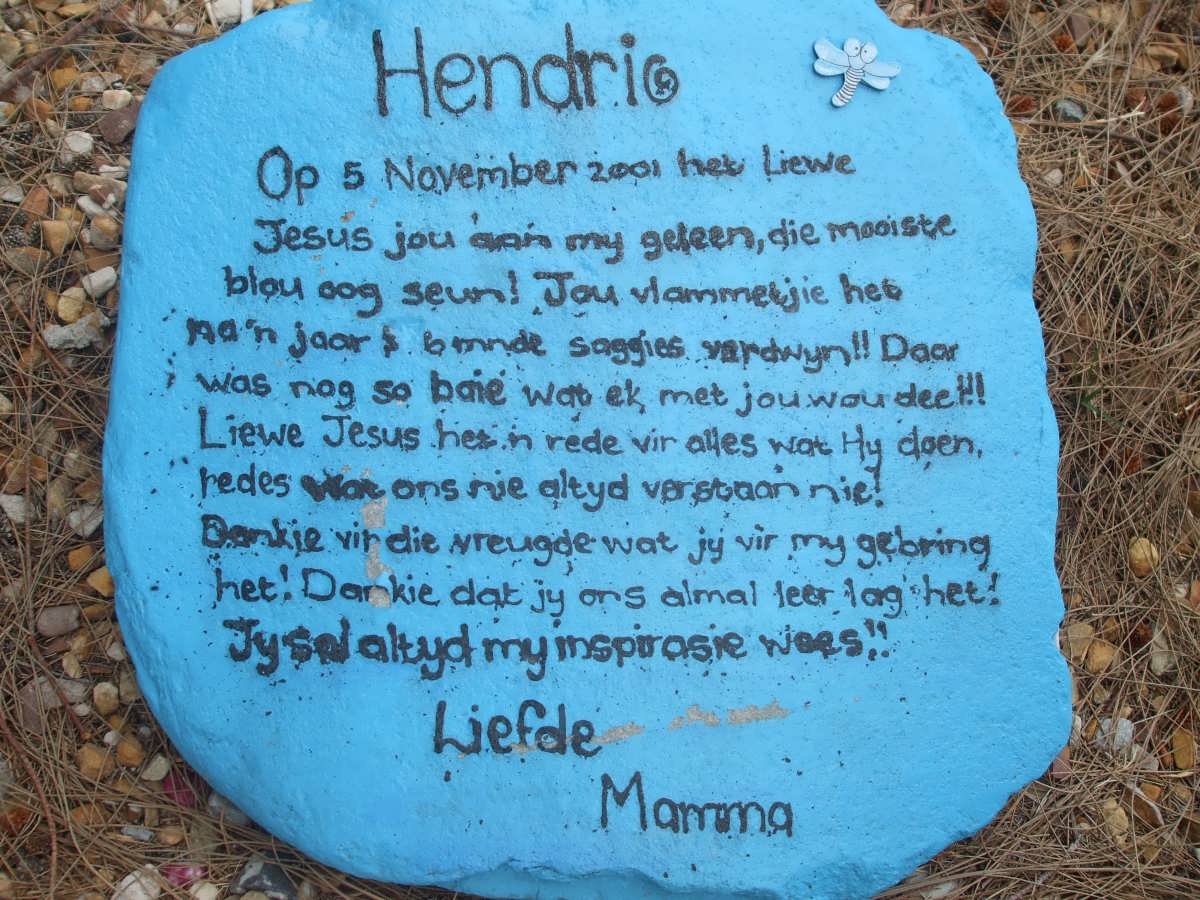 Hendrio
Op 5 November 2001 het Liewe
Jesus jou aan my geleen, die mooiste
blou oog seun! Jou vlammetjie het
na 'n jaar & 6 mnde saggies verdwyn!! Daar
was nog so baie wat ek met jou wou deel!!!
Liewe Jesus het 'n rede vir alles wat Hy doen,
redes wat ons nie altyd verstaan nie!
Dankie vir die vreugde wat jy vir my gebring
het! Dankie dat jy ons almal leer lag het!
Jy sal altyd my inspirasie wees!!
Liefde
Mamma